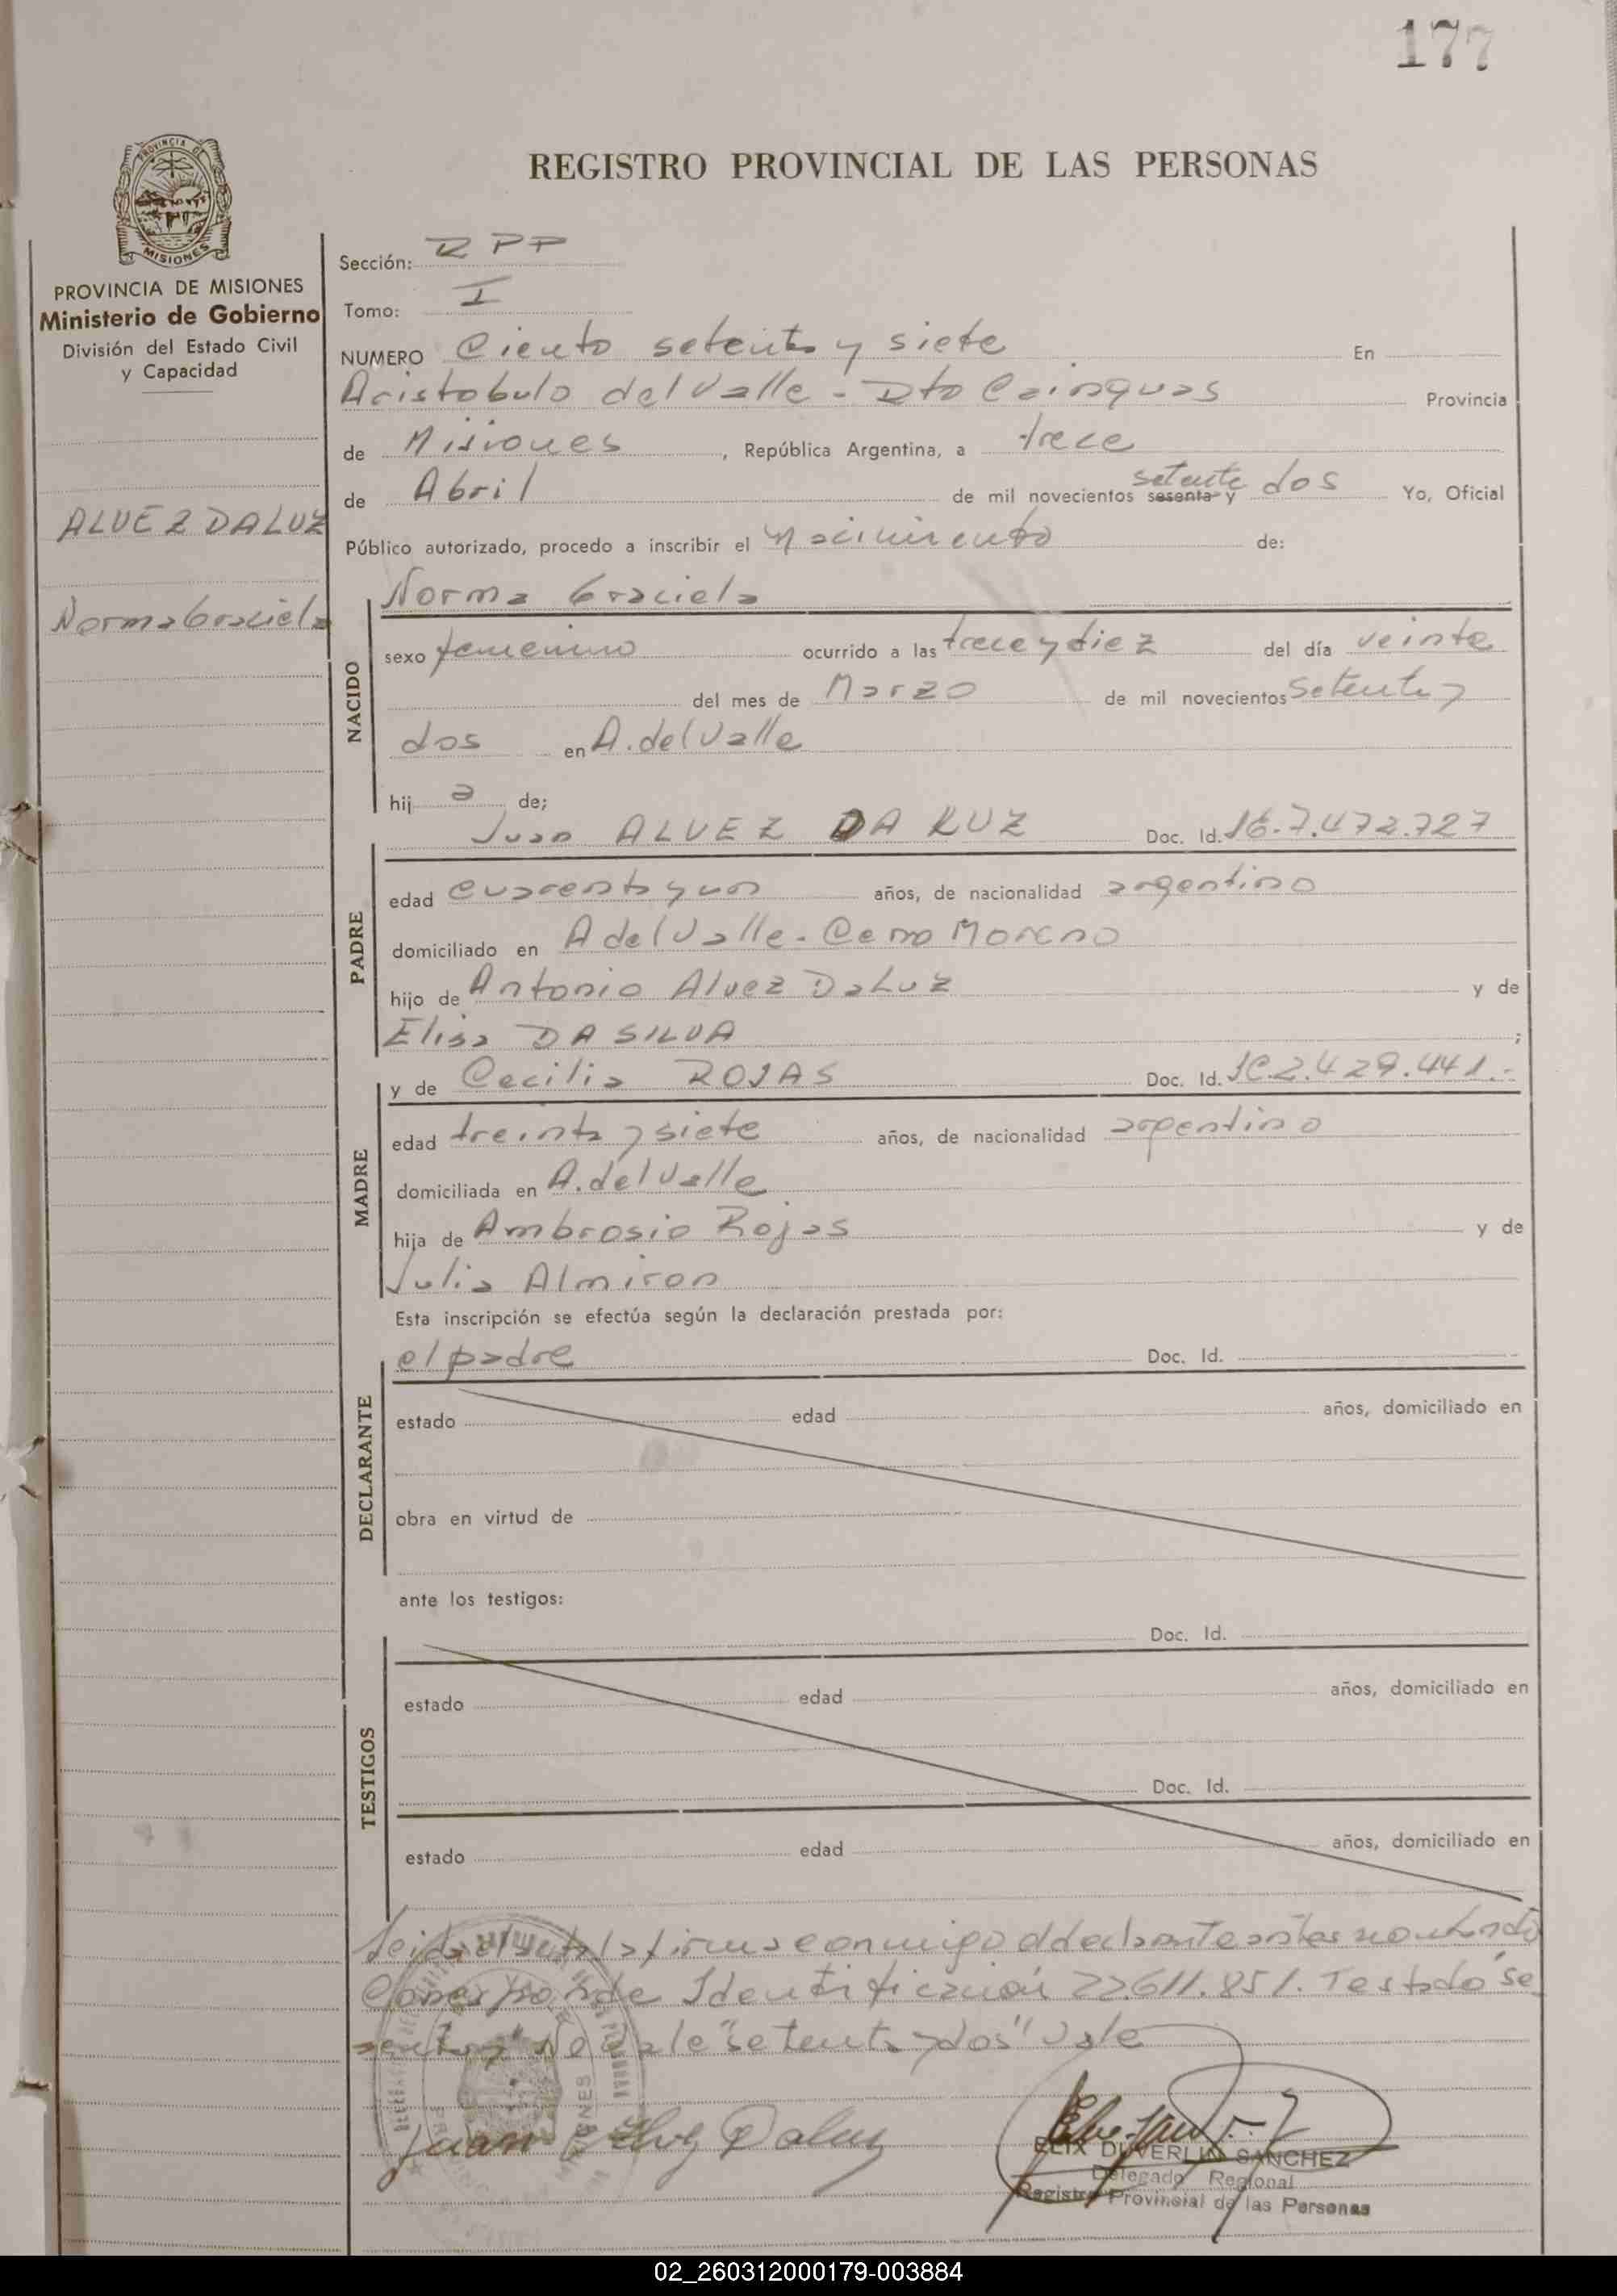 177
PROVINCIA DE
MISIONES
REGISTRO PROVINCIAL DE LAS PERSONAS
PROVINCIA DE MISIONES
Ministerio de Gobierno
División del Estado Civil
y Capacidad
ALVEZ DA LUZ
Norma Graciela
Sección: RPP
Tomo: I
NUMERO Ciento setenta y siete En
Aristobulo del Valle - Dto Cainguas Provincia
de Misiones, República Argentina, a trece
setenta
de Abril de mil novecientos sesenta y dos Yo, Oficial
Público autorizado, procedo a inscribir el nacimiento de:
NACIDO
Norma Graciela
sexo femenino ocurrido a las trece y diez del día veinte
del mes de Marzo de mil novecientos setenta y
dos en A. del Valle
hij a de;
Juan ALVEZ DA LUZ Doc. Id. 7.472.727
PADRE
edad cuarenta y un años, de nacionalidad argentino
domiciliado en A del Valle - Cerro Moreno
hijo de Antonio Alvez Da Luz y de
Elisa DA SILVA ;
y de Cecilia ROJAS Doc. Id. 2.429.441.-
MADRE
edad treinta y siete años, de nacionalidad argentino
domiciliada en A. del Valle
hija de Ambrosio Rojas y de
Julia Almiron
Esta inscripción se efectúa según la declaración prestada por:
DECLARANTE
el padre Doc. Id.
estado edad años, domiciliado en
obra en virtud de
ante los testigos:
TESTIGOS
Doc. Id.
estado edad años, domiciliado en
Doc. Id.
estado edad años, domiciliado en
Leida el acta la firma conmigo el declarante antes nombrado
Corresponde Identificación 22.611.851. Testado "se
senta y" No vale "setenta y dos" Vale
Juan Alvez Daluz
ELIX DUVERLIN SANCHEZ
Delegado Regional
Registro Provincial de las Personas
02_260312000179-003884